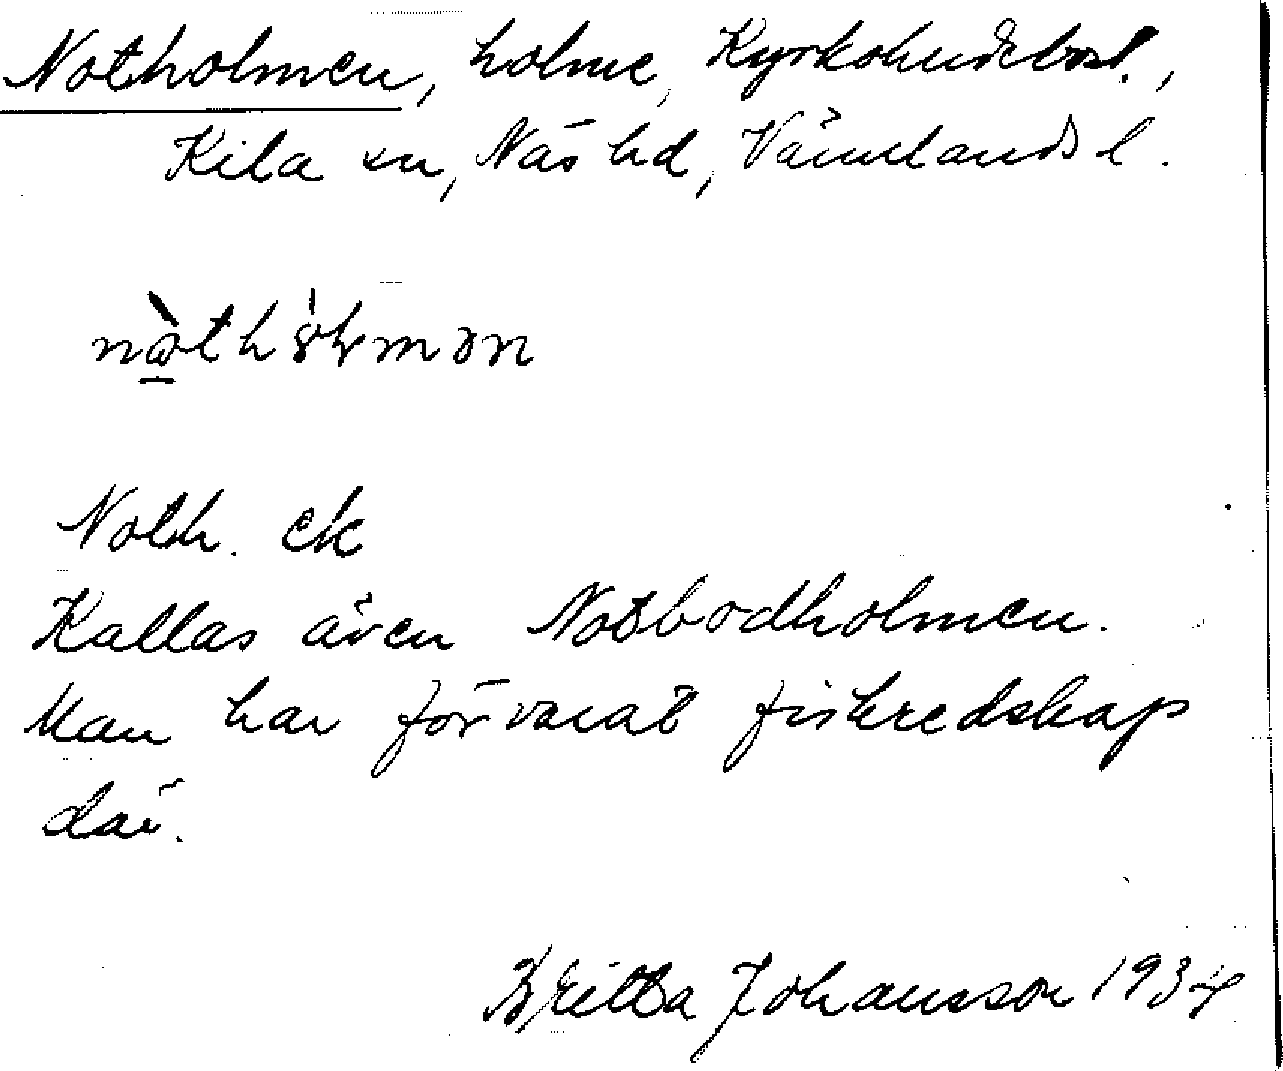 Notholmen, holme, Kyrkoherdebost.,
Kila sn, Näs hd, Värmlands l.
Noth. ek
Kallas även Notbodholmen.
Man har förvarat fiskredskap
där.
Britta Johansson 1934